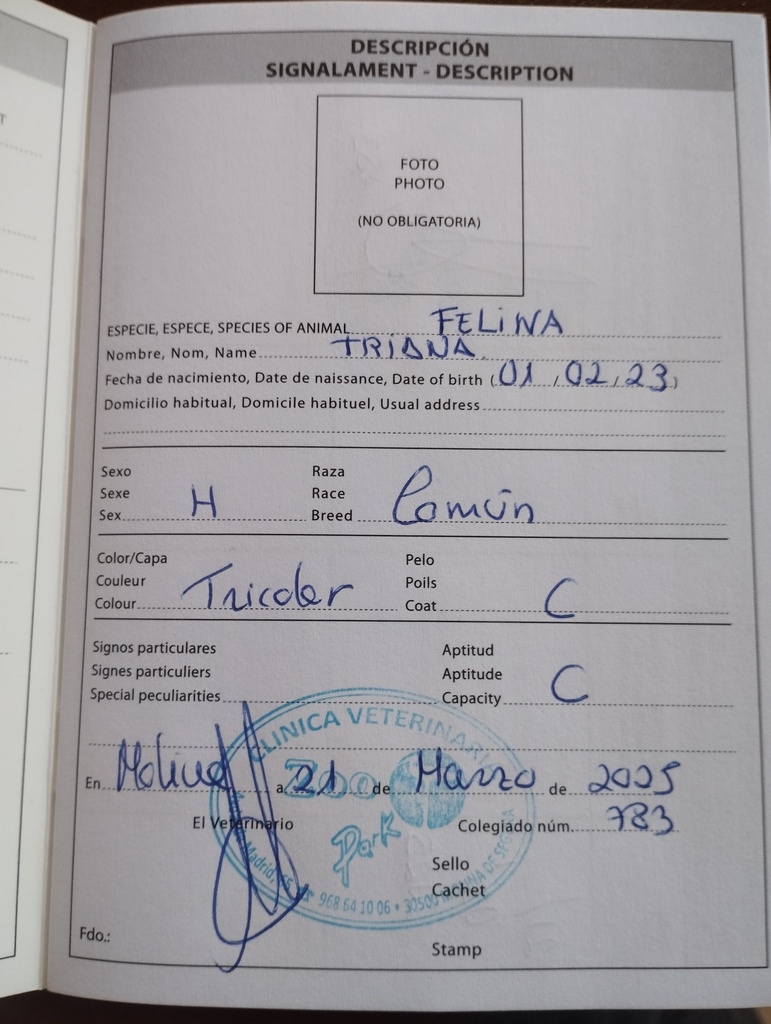 T
DESCRIPCIÓN
SIGNALAMENT - DESCRIPTION
FOTO
PHOTO
(NO OBLIGATORIA)
ESPECIE, ESPECE, SPECIES OF ANIMAL FELINA
Nombre, Nom, Name TRIANA
Fecha de nacimiento, Date de naissance, Date of birth (01 / 02 / 23)
Domicilio habitual, Domicile habituel, Usual address
Sexo Raza
Sexe Race
Sex H Breed Común
Color/Capa Pelo
Couleur Poils
Colour Tricolor Coat C
Signos particulares Aptitud
Signes particuliers Aptitude
Special peculiarities Capacity C
CLINICA VETERINARIA
Zoo
Park
Madrid, 968 64 10 06 • 30500 MOLINA DE SEGURA
En Molina a 21 de Marzo de 2025
El Veterinario Colegiado núm. 783
Sello
Cachet
Fdo.: Stamp